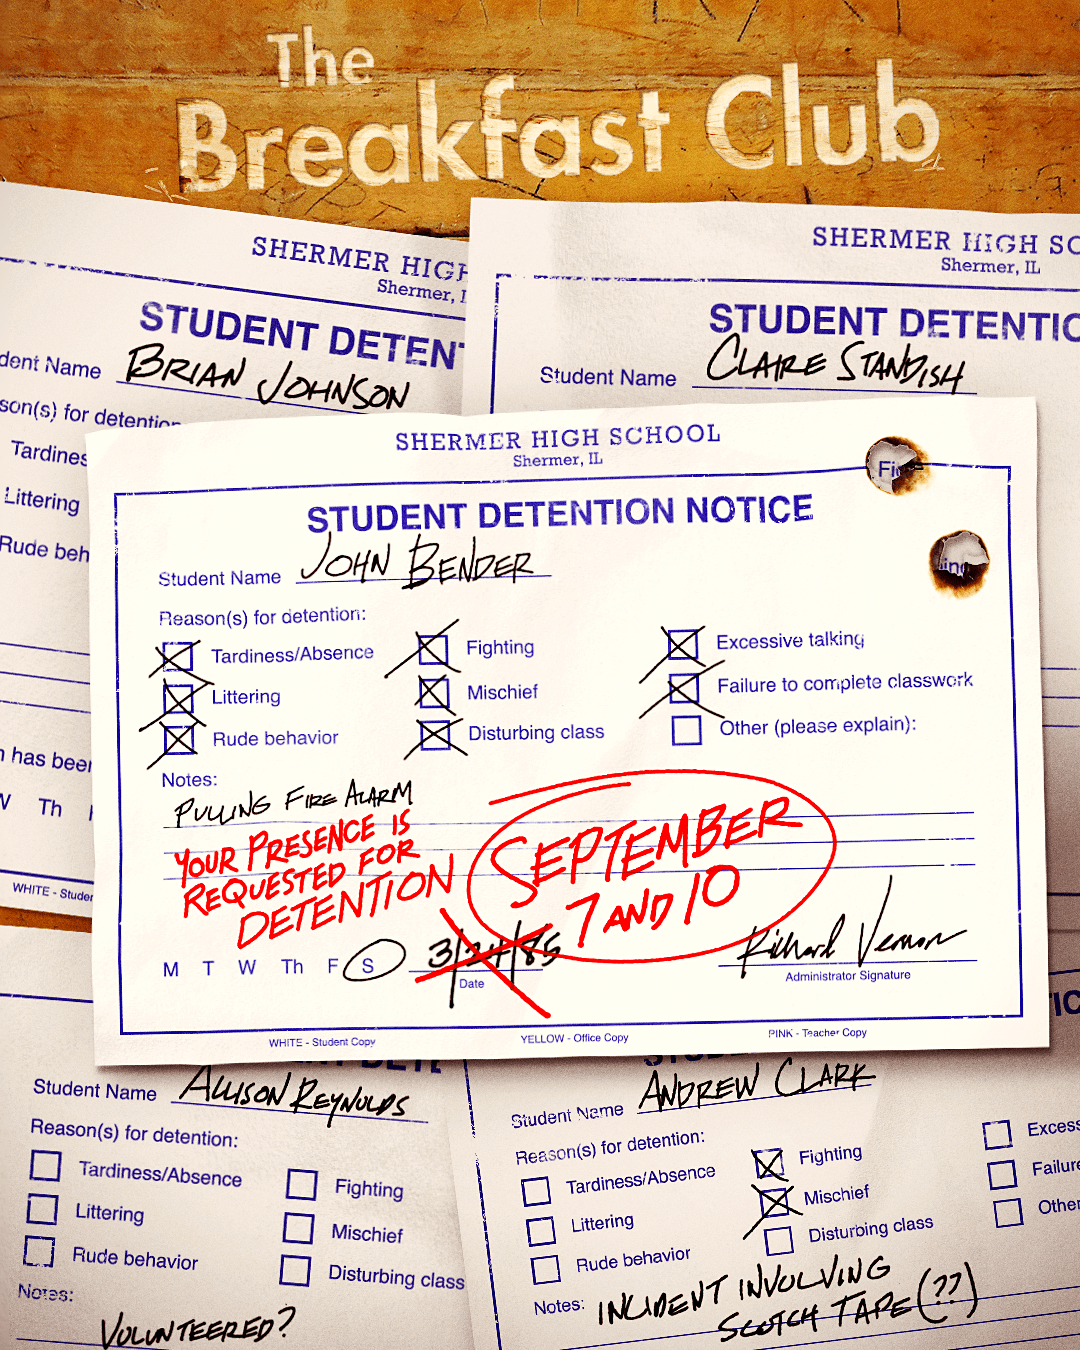 The
Breakfast Club
SHERMER HIGH
Shermer, I
STUDENT DETEN
dent Name BRIAN JOHNSON
son(s) for detention
Tardines
Littering
Rude beh
has been
W Th
WHITE - Studen
SHERMER HIGH SC
Shermer, IL
STUDENT DETENTIO
Student Name CLAIRE STANDISH
SHERMER HIGH SCHOOL
Shermer, IL
STUDENT DETENTION NOTICE
Student Name JOHN BENDER
Reason(s) for detention:
Tardiness/Absence Fighting Excessive talking
Littering Mischief Failure to complete classwork
Rude behavior Disturbing class Other (please explain):
Notes:
PULLING FIRE ALARM
YOUR PRESENCE IS
REQUESTED FOR
DETENTION
SEPTEMBER
7 AND 10
M T W Th F S 3/24/85 Richard Vernon
Date Administrator Signature
WHITE - Student Copy YELLOW - Office Copy PINK - Teacher Copy
Student Name ALLISON REYNOLDS
Reason(s) for detention:
Tardiness/Absence Fighting
Littering Mischief
Rude behavior Disturbing class
Notes:
VOLUNTEERED?
Student Name ANDREW CLARK
Reason(s) for detention:
Tardiness/Absence Fighting Excess
Littering Mischief Failure
Rude behavior Disturbing class Other
Notes: INCIDENT INVOLVING
SCOTCH TAPE (??)